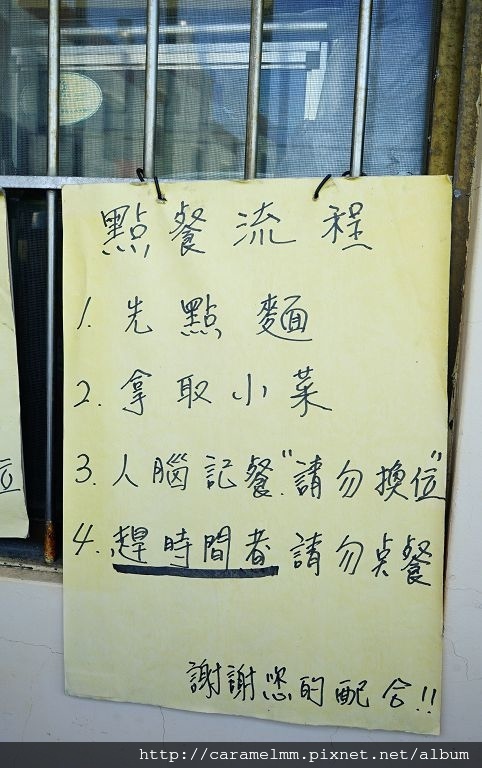 點餐流程
1. 先點麵
2. 拿取小菜
3. 人腦記餐."請勿換位"
4. 趕時間者請勿点餐
謝謝您的配合!!
位
http://caramelmm.pixnet.net/album